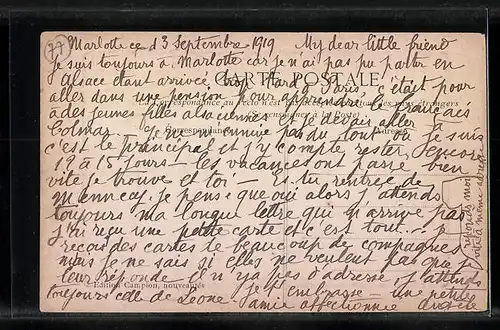 77
Marlotte ce 13 Septembre 1919 My dear little friend
Je suis toujours à Marlotte car je n'ai pas pu partir en
Alsace étant arrivée trop tard à Paris, c'était pour
CARTE POSTALE
aller dans une pension pour apprendre le français
à des jeunes filles alsaciennes et je devais aller
Colmar. Je ne m'ennuie pas du tout où je suis
c'est le principal et j'y compte rester encore
12 à 15 jours - les vacances ont passé bien
vite je trouve et toi - Es tu rentrée de
Mennecy. Je pense que oui alors j'attends
toujours ma longue lettre qui n'arrive pas
J'ai reçu une petite carte et c'est tout. - Je
reçois des cartes de beaucoup de compagnes
mais je ne sais si elles ne veulent pas que je
leur réponde - Il n'y a pas d'adresse j'attends
Edition Campion, nouveautés
toujours celle de Leone. - Je t'embrasse - une petite
amie affectionnée
réponds moi